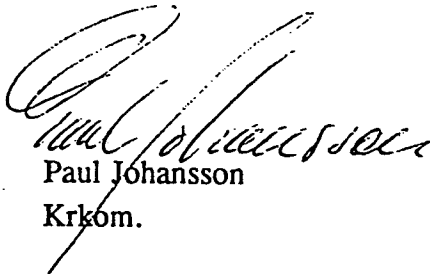 Paul Johansson
Paul Johansson
Krkom.